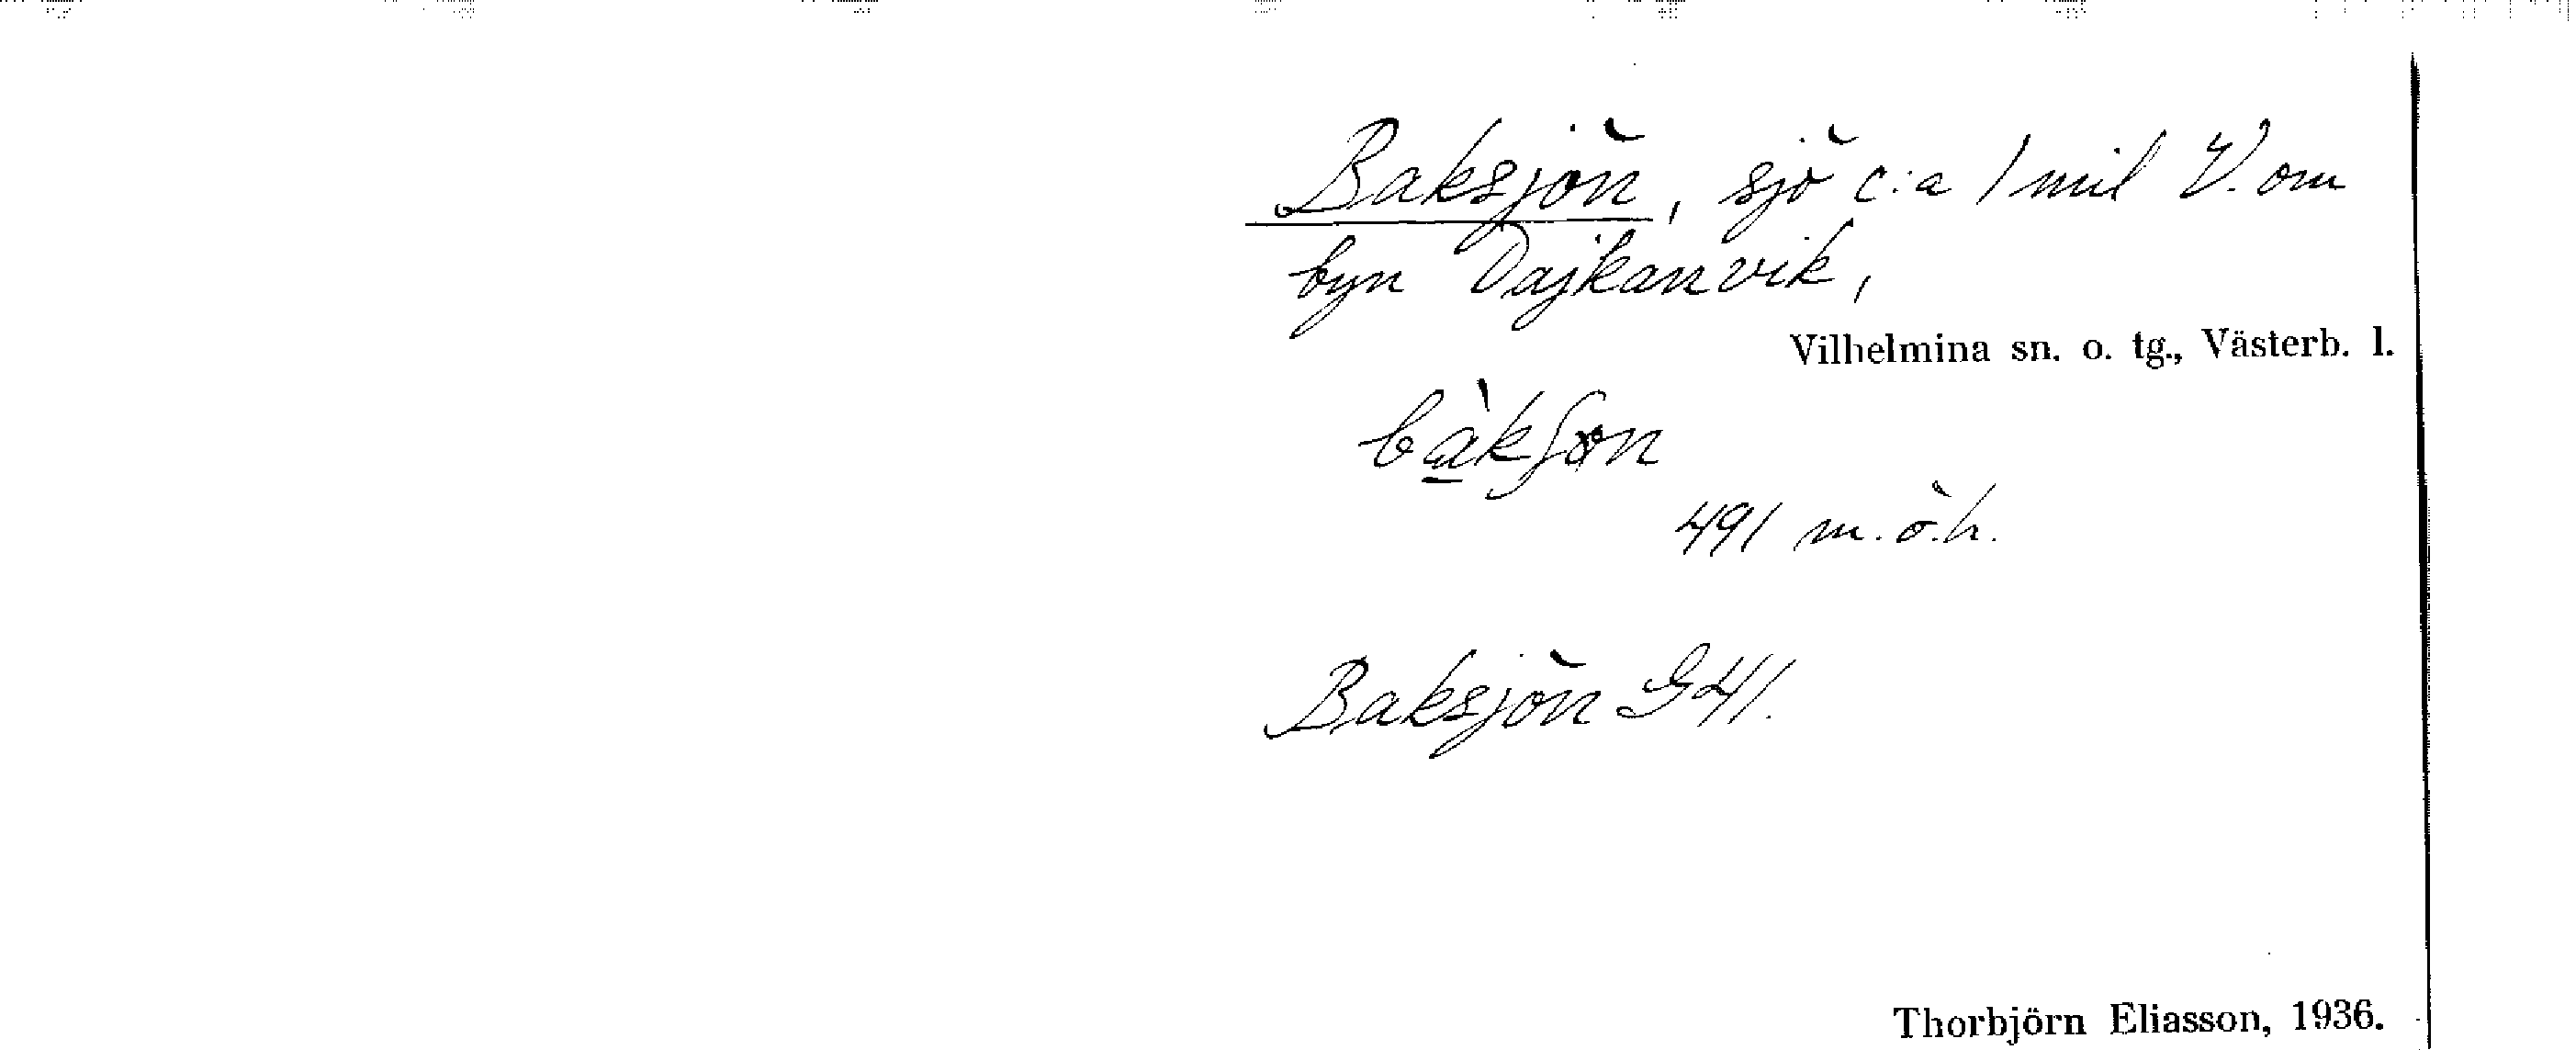 Baksjön, sjö c:a 1 mil V. om
byn Dajkanvik,
Vilhelmina sn. o. tg., Västerb. l.
bàkʃøn
491 m.ö.h.
Baksjön G41.
Thorbjörn Eliasson, 1936.